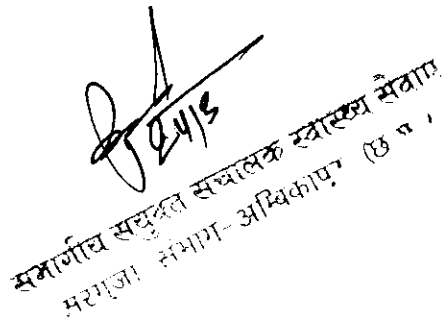 24/5
सभागीय सयुक्त सचालक स्वास्थ्य सेवाए
सरगुजा सभाग-अम्बिकापुर (छ ग )